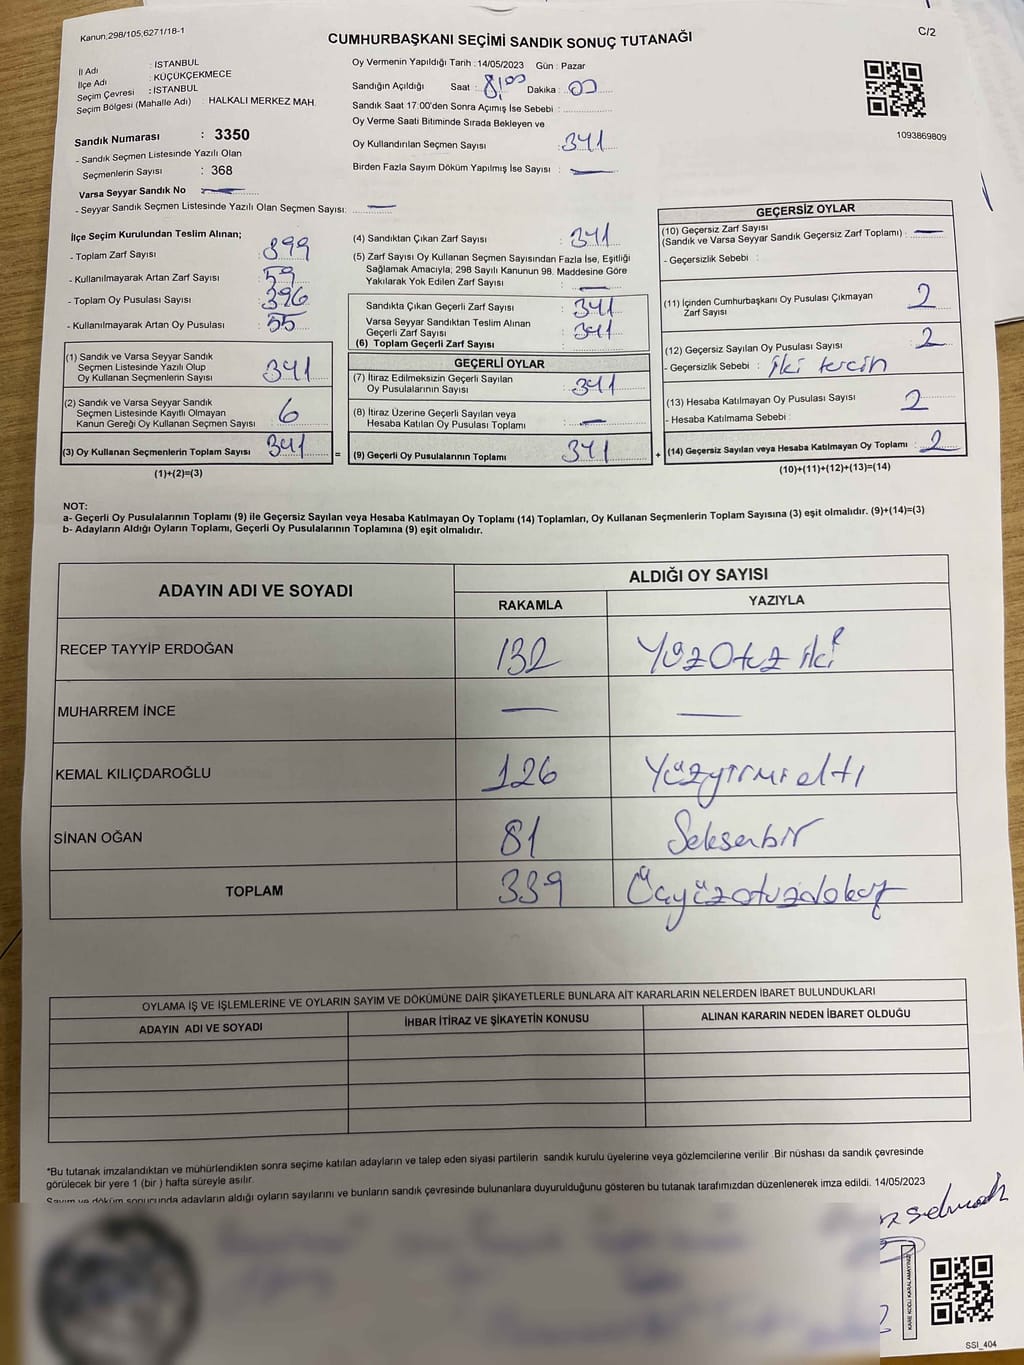 Kanun,298/105,6271/18-1
C/2
CUMHURBAŞKANI SEÇİMİ SANDIK SONUÇ TUTANAĞI
İl Adı : İSTANBUL
İlçe Adı : KÜÇÜKÇEKMECE
Seçim Çevresi : İSTANBUL
Seçim Bölgesi (Mahalle Adı) : HALKALI MERKEZ MAH.
Sandık Numarası : 3350
- Sandık Seçmen Listesinde Yazılı Olan
Seçmenlerin Sayısı : 368
Varsa Seyyar Sandık No —
- Seyyar Sandık Seçmen Listesinde Yazılı Olan Seçmen Sayısı: —
Oy Vermenin Yapıldığı Tarih : 14/05/2023 Gün : Pazar
Sandığın Açıldığı Saat : 8,00 Dakika : 00
Sandık Saat 17:00'den Sonra Açımış İse Sebebi :
Oy Verme Saati Bitiminde Sırada Bekleyen ve
Oy Kullandırılan Seçmen Sayısı : 341
Birden Fazla Sayım Döküm Yapılmış İse Sayısı : —
1093869809
İlçe Seçim Kurulundan Teslim Alınan;
- Toplam Zarf Sayısı : 399
- Kullanılmayarak Artan Zarf Sayısı : 59
- Toplam Oy Pusulası Sayısı : 396
- Kullanılmayarak Artan Oy Pusulası : 55
(1) Sandık ve Varsa Seyyar Sandık
Seçmen Listesinde Yazılı Olup
Oy Kullanan Seçmenlerin Sayısı : 341
(2) Sandık ve Varsa Seyyar Sandık
Seçmen Listesinde Kayıtlı Olmayan
Kanun Gereği Oy Kullanan Seçmen Sayısı : 6
(3) Oy Kullanan Seçmenlerin Toplam Sayısı : 341
(1)+(2)=(3)
(4) Sandıktan Çıkan Zarf Sayısı : 341
(5) Zarf Sayısı Oy Kullanan Seçmen Sayısından Fazla İse, Eşitliği
Sağlamak Amacıyla; 298 Sayılı Kanunun 98. Maddesine Göre
Yakılarak Yok Edilen Zarf Sayısı : —
Sandıkta Çıkan Geçerli Zarf Sayısı : 341
Varsa Seyyar Sandıktan Teslim Alınan
Geçerli Zarf Sayısı : 341
(6) Toplam Geçerli Zarf Sayısı :
GEÇERLİ OYLAR
(7) İtiraz Edilmeksizin Geçerli Sayılan
Oy Pusulalarının Sayısı : 341
(8) İtiraz Üzerine Geçerli Sayılan veya
Hesaba Katılan Oy Pusulası Toplamı : —
= (9) Geçerli Oy Pusulalarının Toplamı : 341
GEÇERSİZ OYLAR
(10) Geçersiz Zarf Sayısı
(Sandık ve Varsa Seyyar Sandık Geçersiz Zarf Toplamı) : —
- Geçersizlik Sebebi :
(11) İçinden Cumhurbaşkanı Oy Pusulası Çıkmayan
Zarf Sayısı : 2
(12) Geçersiz Sayılan Oy Pusulası Sayısı : 2
- Geçersizlik Sebebi : iki tercih
(13) Hesaba Katılmayan Oy Pusulası Sayısı : 2
- Hesaba Katılmama Sebebi :
+ (14) Geçersiz Sayılan veya Hesaba Katılmayan Oy Toplamı : 2
(10)+(11)+(12)+(13)=(14)
NOT:
a- Geçerli Oy Pusulalarının Toplamı (9) ile Geçersiz Sayılan veya Hesaba Katılmayan Oy Toplamı (14) Toplamları, Oy Kullanan Seçmenlerin Toplam Sayısına (3) eşit olmalıdır. (9)+(14)=(3)
b- Adayların Aldığı Oyların Toplamı, Geçerli Oy Pusulalarının Toplamına (9) eşit olmalıdır.
ADAYIN ADI VE SOYADI ALDIĞI OY SAYISI
RAKAMLA YAZIYLA
RECEP TAYYİP ERDOĞAN 132 Yüzotuz iki
MUHARREM İNCE — —
KEMAL KILIÇDAROĞLU 126 Yüzyirmialtı
SİNAN OĞAN 81 Seksenbir
TOPLAM 339 Üçyüzotuzdokuz
OYLAMA İŞ VE İŞLEMLERİNE VE OYLARIN SAYIM VE DÖKÜMÜNE DAİR ŞİKAYETLERLE BUNLARA AİT KARARLARIN NELERDEN İBARET BULUNDUKLARI
ADAYIN ADI VE SOYADI İHBAR İTİRAZ VE ŞİKAYETİN KONUSU ALINAN KARARIN NEDEN İBARET OLDUĞU
*Bu tutanak imzalandıktan ve mühürlendikten sonra seçime katılan adayların ve talep eden siyasi partilerin sandık kurulu üyelerine veya gözlemcilerine verilir .Bir nüshası da sandık çevresinde
görülecek bir yere 1 (bir ) hafta süreyle asılır.
Sayım ve döküm sonucunda adayların aldığı oyların sayılarını ve bunların sandık çevresinde bulunanlara duyurulduğunu gösteren bu tutanak tarafımızdan düzenlenerek imza edildi. 14/05/2023
KARE KODU KARALAMAYINIZ
SSI_404